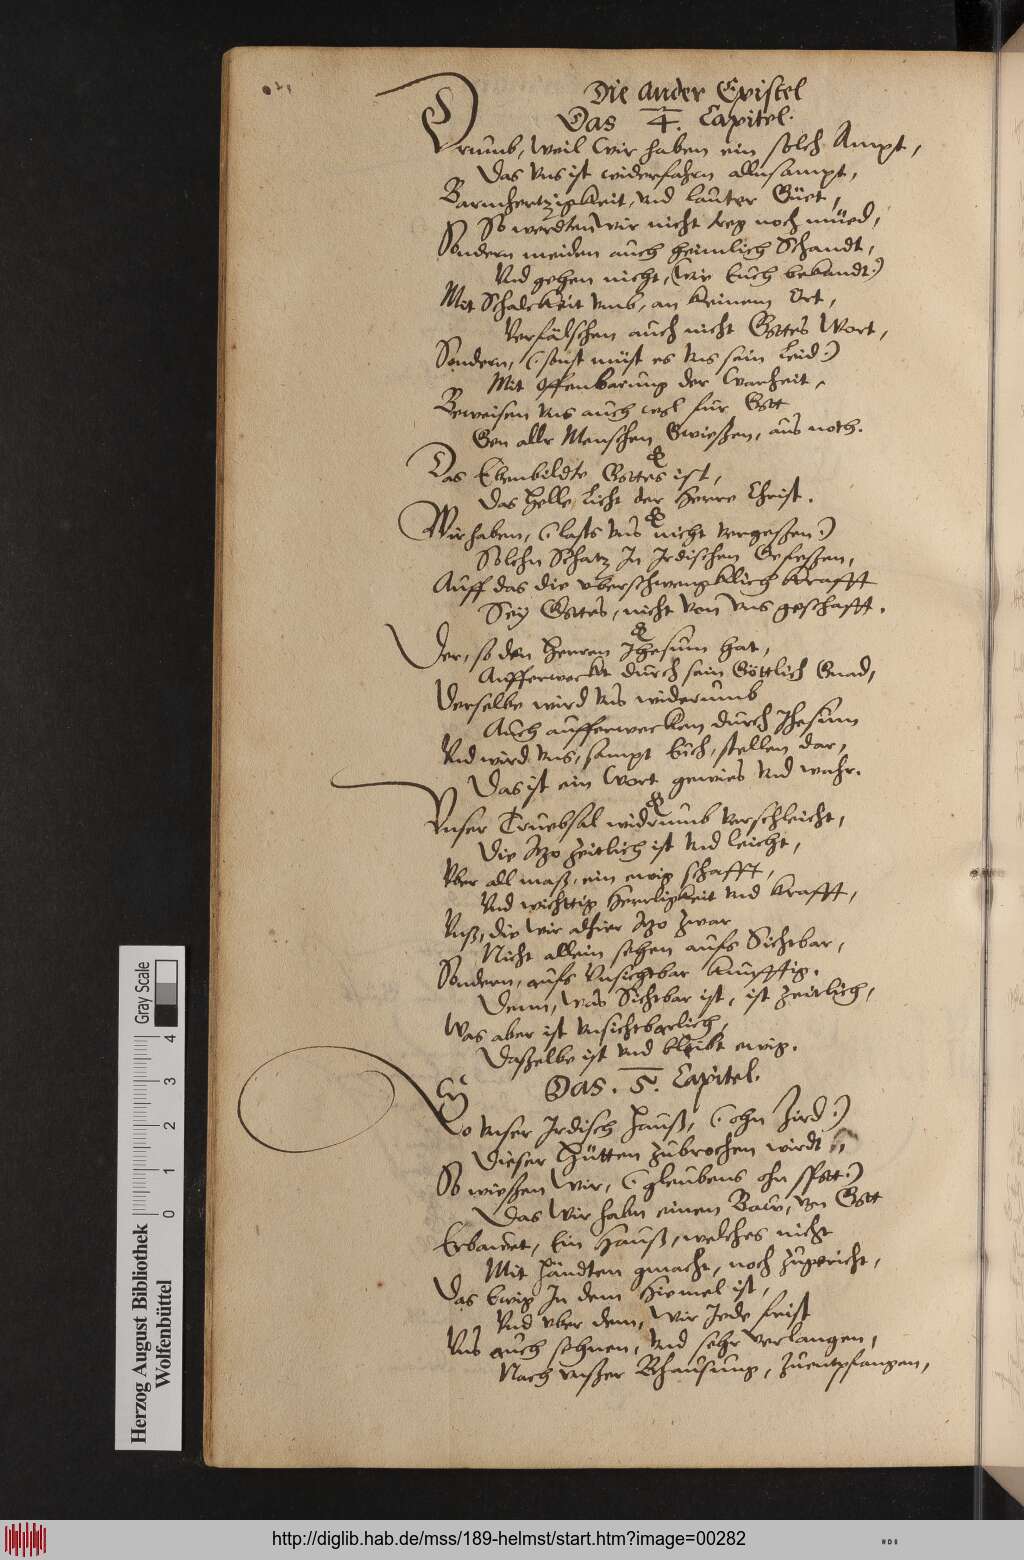 Die ander Epistel
Das 4. Capitel.
Drumb, weil Wir haben ein solch Ampt,
Das Uns ist widerfahrn allnsampt,
Barmhertzigkeit, Und lauter Güet,
So werdten Wir nicht treg noch müed,
Sondern meiden auch heimlich Schandt,
Und gehen nicht, (wie Euch bekandt:)
Mit Schalckheit umb, an keinem Ort,
Verfälschen auch nicht Gottes Wort,
Sondern, (: sonst müst es Uns sein Leid :)
Mit Offenbarung der Warheit,
Beweisen Uns auch wol für Gott
Gen alle Menschen Gwießen, aus noth.
&
Das Ebenbildte Gottes ist,
Das Helle Licht der Herre Christ.
&
Wir haben, (: lasts Uns nicht vergeßen :)
Solchn Schatz In Irdischen Gefeßen,
Auff das die uberschwengklich Krafft
Sey Gottes, nicht von Uns geschafft.
&
Der, so den Herren Jhesum hat,
Aufferweckt durch sein Göttlich Gnad,
Derselbe wird Uns widerumb
Auch aufferwecken durch Jhesum
Und wird Uns, sampt Euch, stellen dar,
Das ist ein Wort gewies Und wahr.
&
Unser Truebsal widrumb verschleicht,
Die Itzo Zeitlich ist Und leicht,
Uber all maß, ein ewig schafft,
Und wichttig Herrligkeit Und Krafft,
Unß, die Wir alhier Itzo zwar
Nicht allein sehen aufs Sichtbar,
Sondern, aufs Unsichtbar künfftig.
Denn, Was Sichtbar ist, ist Zeitlich,
Was aber ist Unsichtbarlich,
Daßelbe ist Und bleibt ewig.
Das. 5. Capitel.
So Unser Irdisch Hauß, (: ohn Zird :)
Dieser Hütten Zubrochen wirdt,
So wießen Wir, (: glaubens ohn spott :)
Das Wir habn einen Baw, von Gott
Erbawet, Ein Hauß, welches nicht
Mit Händten gmacht, noch Zugericht,
Das Ewig In dem Himel ist,
Und uber dem, Wir Jede frist
Uns auch sehnen, Und sehr verlangen,
Nach Unßer Bhausung, Zuentpfangen,
Gray Scale
0 1 2 3 4
Herzog August Bibliothek
Wolfenbüttel
http://diglib.hab.de/mss/189-helmst/start.htm?image=00282